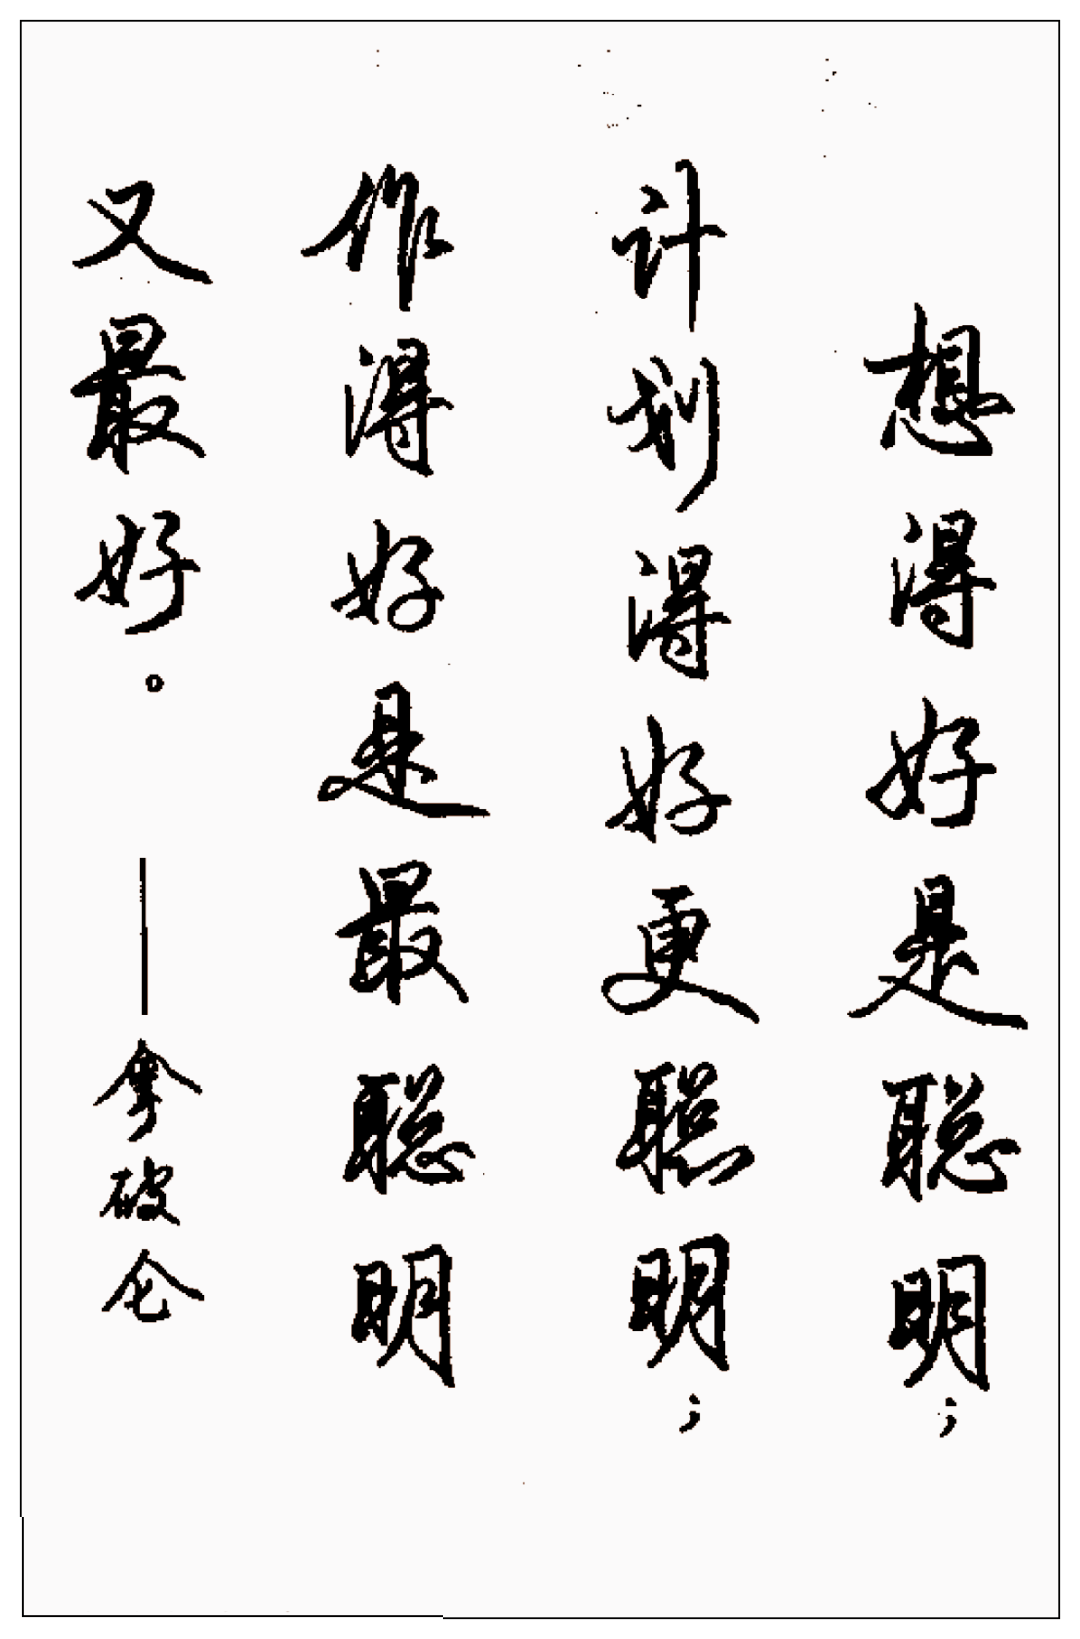 想得好是聪明；
计划得好更聪明；
作得好是最聪明
又最好。——拿破仑